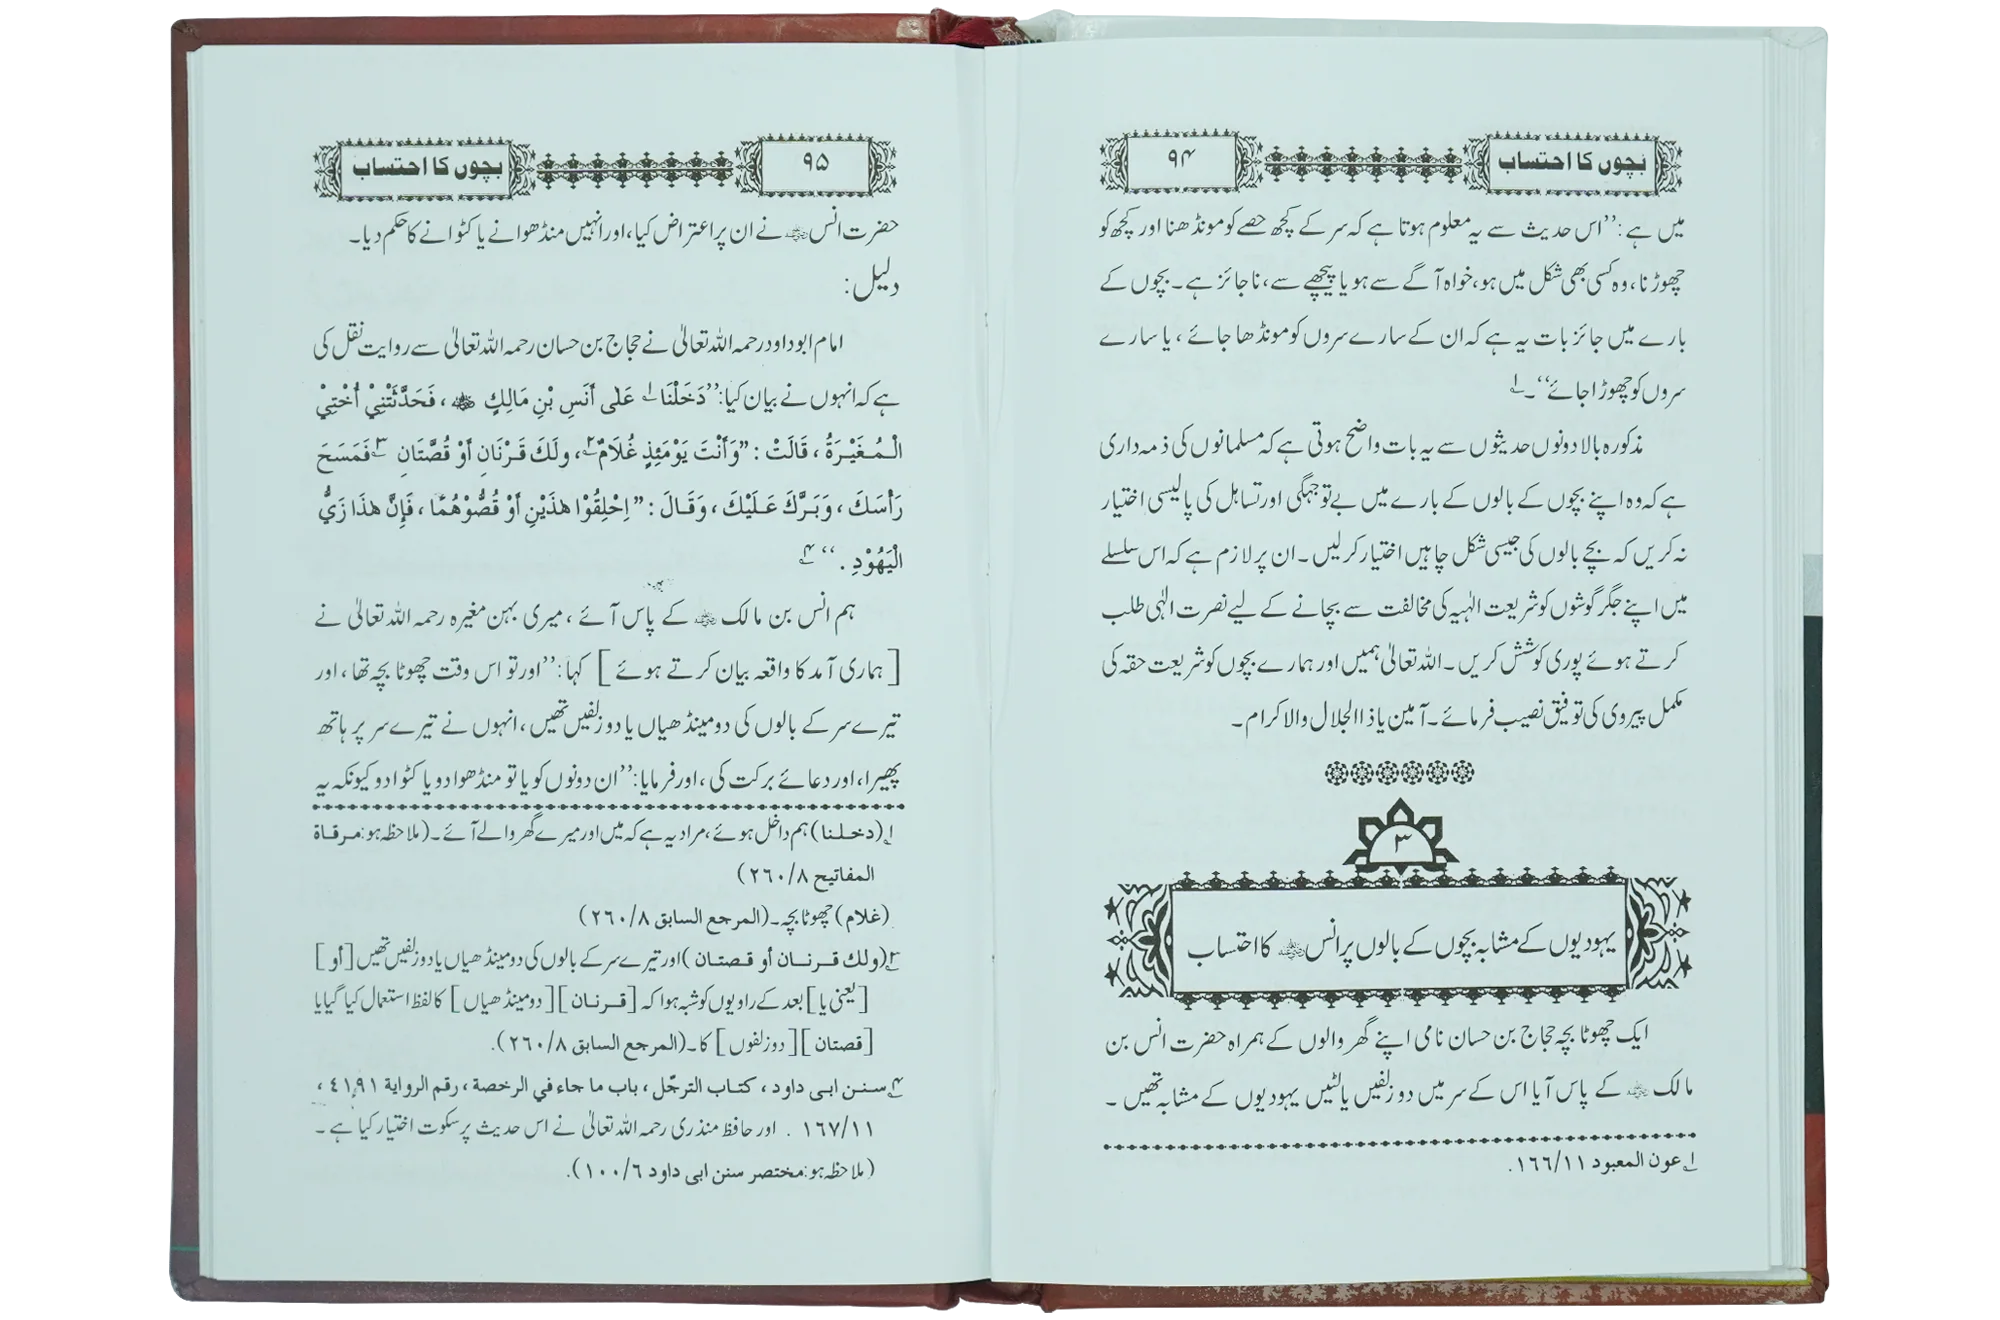 بچوں کا احتساب ۹۴
میں ہے: ’’اس حدیث سے یہ معلوم ہوتا ہے کہ سر کے کچھ حصے کو مونڈھنا اور کچھ کو
چھوڑنا، وہ کسی بھی شکل میں ہو، خواہ آگے سے ہو یا پیچھے سے، ناجائز ہے۔ بچوں کے
بارے میں جائز بات یہ ہے کہ ان کے سارے سروں کو مونڈھا جائے، یا سارے
سروں کو چھوڑا جائے‘‘۔ ۱
مذکورہ بالا دونوں حدیثوں سے یہ بات واضح ہوتی ہے کہ مسلمانوں کی ذمہ داری
ہے کہ وہ اپنے بچوں کے بالوں کے بارے میں بے توجہگی اور تساہل کی پالیسی اختیار
نہ کریں کہ بچے بالوں کی جیسی شکل چاہیں اختیار کرلیں۔ ان پر لازم ہے کہ اس سلسلے
میں اپنے جگر گوشوں کو شریعت الٰہیہ کی مخالفت سے بچانے کے لیے نصرت الٰہی طلب
کرتے ہوئے پوری کوشش کریں۔ اللہ تعالیٰ ہمیں اور ہمارے بچوں کو شریعت حقہ کی
مکمل پیروی کی توفیق نصیب فرمائے۔ آمین یا ذا الجلال والاکرام۔
۳
یہودیوں کے مشابہ بچوں کے بالوں پر انس رضی اللہ عنہ کا احتساب
ایک چھوٹا بچہ حجاج بن حسان نامی اپنے گھر والوں کے ہمراہ حضرت انس بن
مالک رضی اللہ عنہ کے پاس آیا اس کے سر میں دو زلفیں یا لٹیں یہودیوں کے مشابہ تھیں۔
۱ عون المعبود ١٦٦/١١.
بچوں کا احتساب ۹۵
حضرت انس رضی اللہ عنہ نے ان پر اعتراض کیا، اور انہیں منڈھوانے یا کٹوانے کا حکم دیا۔
دلیل:
امام ابوداود رحمہ اللہ تعالیٰ نے حجاج بن حسان رحمہ اللہ تعالیٰ سے روایت نقل کی
ہے کہ انہوں نے بیان کیا: ’’دَخَلْنَا ۱ عَلٰى أَنَسِ بْنِ مَالِكٍ رضی اللہ عنہ، فَحَدَّثَتْنِيْ أُخْتِيْ
الْمُغَيْرَةُ، قَالَتْ: ”وَأَنْتَ يَوْمَئِذٍ غُلَامٌ ۲، ولَكَ قَرْنَانِ أَوْ قُصَّتَانِ ۳ فَمَسَحَ
رَأْسَكَ، وَبَرَّكَ عَلَيْكَ، وَقَالَ: ”اِحْلِقُوْا هٰذَيْنِ أَوْ قُصُّوْهُمَا، فَإِنَّ هٰذَا زَيُّ
الْيَهُوْدِ.‘‘ ۴
ہم انس بن مالک رضی اللہ عنہ کے پاس آئے، میری بہن مغیرہ رحمہ اللہ تعالیٰ نے
[ہماری آمد کا واقعہ بیان کرتے ہوئے] کہا: ’’اور تو اس وقت چھوٹا بچہ تھا، اور
تیرے سر کے بالوں کی دو مینڈھیاں یا دو زلفیں تھیں، انہوں نے تیرے سر پر ہاتھ
پھیرا، اور دعائے برکت کی، اور فرمایا: ’’ان دونوں کو یا تو منڈھوا دو یا کٹوا دو کیونکہ یہ
۱ (دخلنا) ہم داخل ہوئے، مراد یہ ہے کہ میں اور میرے گھر والے آئے۔ (ملاحظہ ہو: مرقاة
المفاتيح ٢٦٠/٨)
(غلام) چھوٹا بچہ۔ (المرجع السابق ٢٦٠/٨)
۲ (ولك قرنان أو قصتان) اور تیرے سر کے بالوں کی دو مینڈھیاں یا دو زلفیں تھیں [أو]
[یعنی یا] بعد کے راویوں کو شبہ ہوا کہ [قرنان] [دو مینڈھیاں] کا لفظ استعمال کیا گیا یا
[قصتان] [دو زلفوں] کا۔ (المرجع السابق ٢٦٠/٨).
۴ سنن ابی داود، كتاب الترجّل، باب ما جاء في الرخصة، رقم الرواية ٤١٩١،
١٦٧/١١. اور حافظ منذری رحمہ اللہ تعالیٰ نے اس حدیث پر سکوت اختیار کیا ہے۔
(ملاحظہ ہو: مختصر سنن ابی داود ١٠٠/٦).